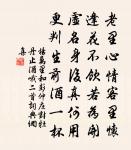 老里心情客里懷
逢花不飲若為開
虛名身後真何用
更判生前酒一杯
楊萬里和彭仲莊對牡
丹止酒 二首詞典網
集